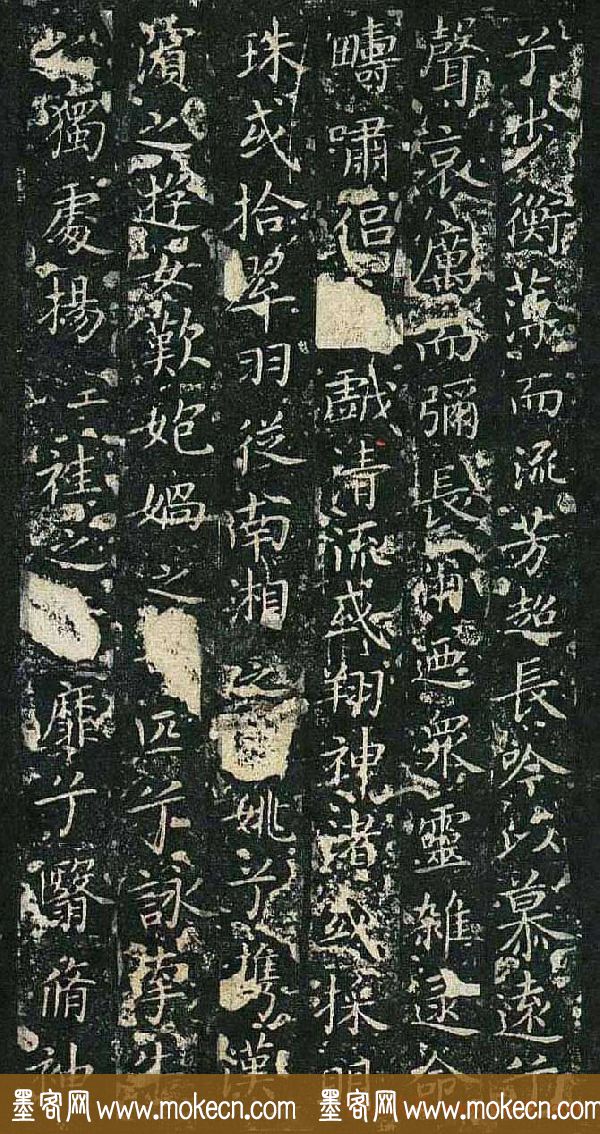 兮步衡薄而流芳超長吟以慕遠兮
聲哀厲而彌長爾迺衆靈雜遝命
疇嘯侶戲清流或翔神渚或採明
珠或拾翠羽從南湘之姚兮攜漢
濱之遊女歎媧之匹兮詠牽牛
之獨處揚袿之靡兮翳脩袖
墨客网 www.mokecn.com 墨客网 www.mokecn.com